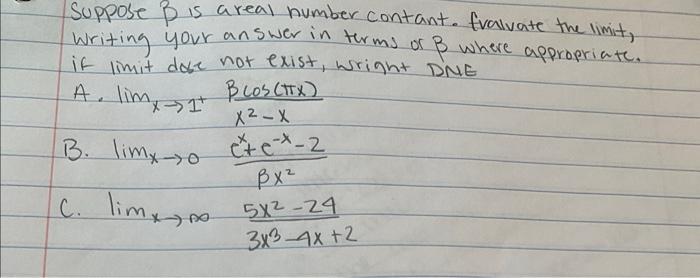 Suppose β is a real number contant. Evalvate the limit,
writing your answer in terms of β where appropriate.
if limit dose not exist, wright DNE
A. lim x→1⁺ βcos(πx) / x² - x
B. lim x→0 eˣ + e⁻ˣ - 2 / βx²
C. lim x→∞ 5x² - 24 / 3x³ - 4x + 2